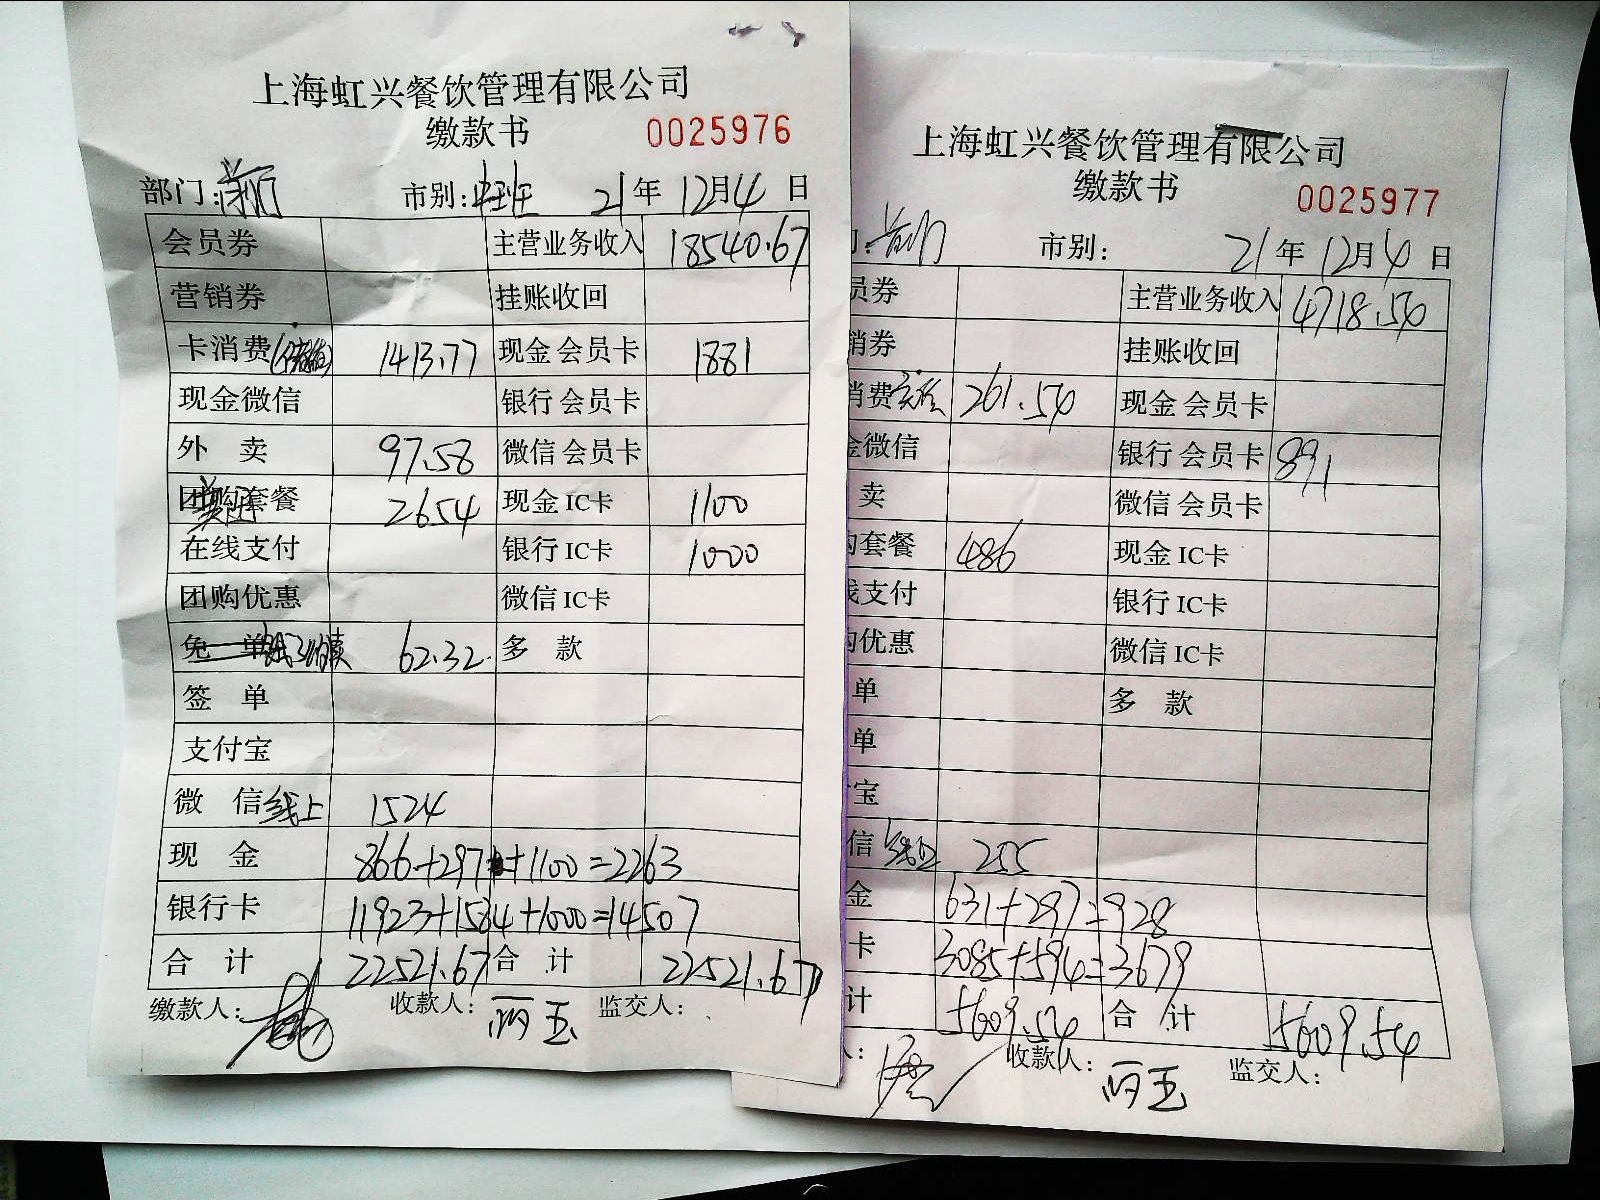 上海虹兴餐饮管理有限公司
缴款书 0025976
部门: 市别: 中班 21年 12月4日
会员券 主营业务收入 18540.67
营销券 挂账收回
卡消费 1413.77 现金会员卡 1881
现金微信 银行会员卡
外 卖 97.58 微信会员卡
团购套餐 2654 现金IC卡 1100
在线支付 银行IC卡 1000
团购优惠 微信IC卡
免 单 62.32 多 款
签 单
支付宝
微 信 线上 1524
现 金 866+297+1100=2263
银行卡 11923+1584+1000=14507
合 计 22521.67 合 计 22521.67
缴款人: 收款人: 丽玉 监交人:
上海虹兴餐饮管理有限公司
缴款书 0025977
市别: 21年 12月4日
员券 主营业务收入 4718.54
销券 挂账收回
消费 261.54 现金会员卡
金微信 银行会员卡 891
卖 微信会员卡
购套餐 486 现金IC卡
线支付 银行IC卡
购优惠 微信IC卡
单 多 款
单
宝
信 线上 255
金 631+297=928
卡 3085+594=3679
计 5609.54 合 计 5609.54
收款人: 丽玉 监交人: